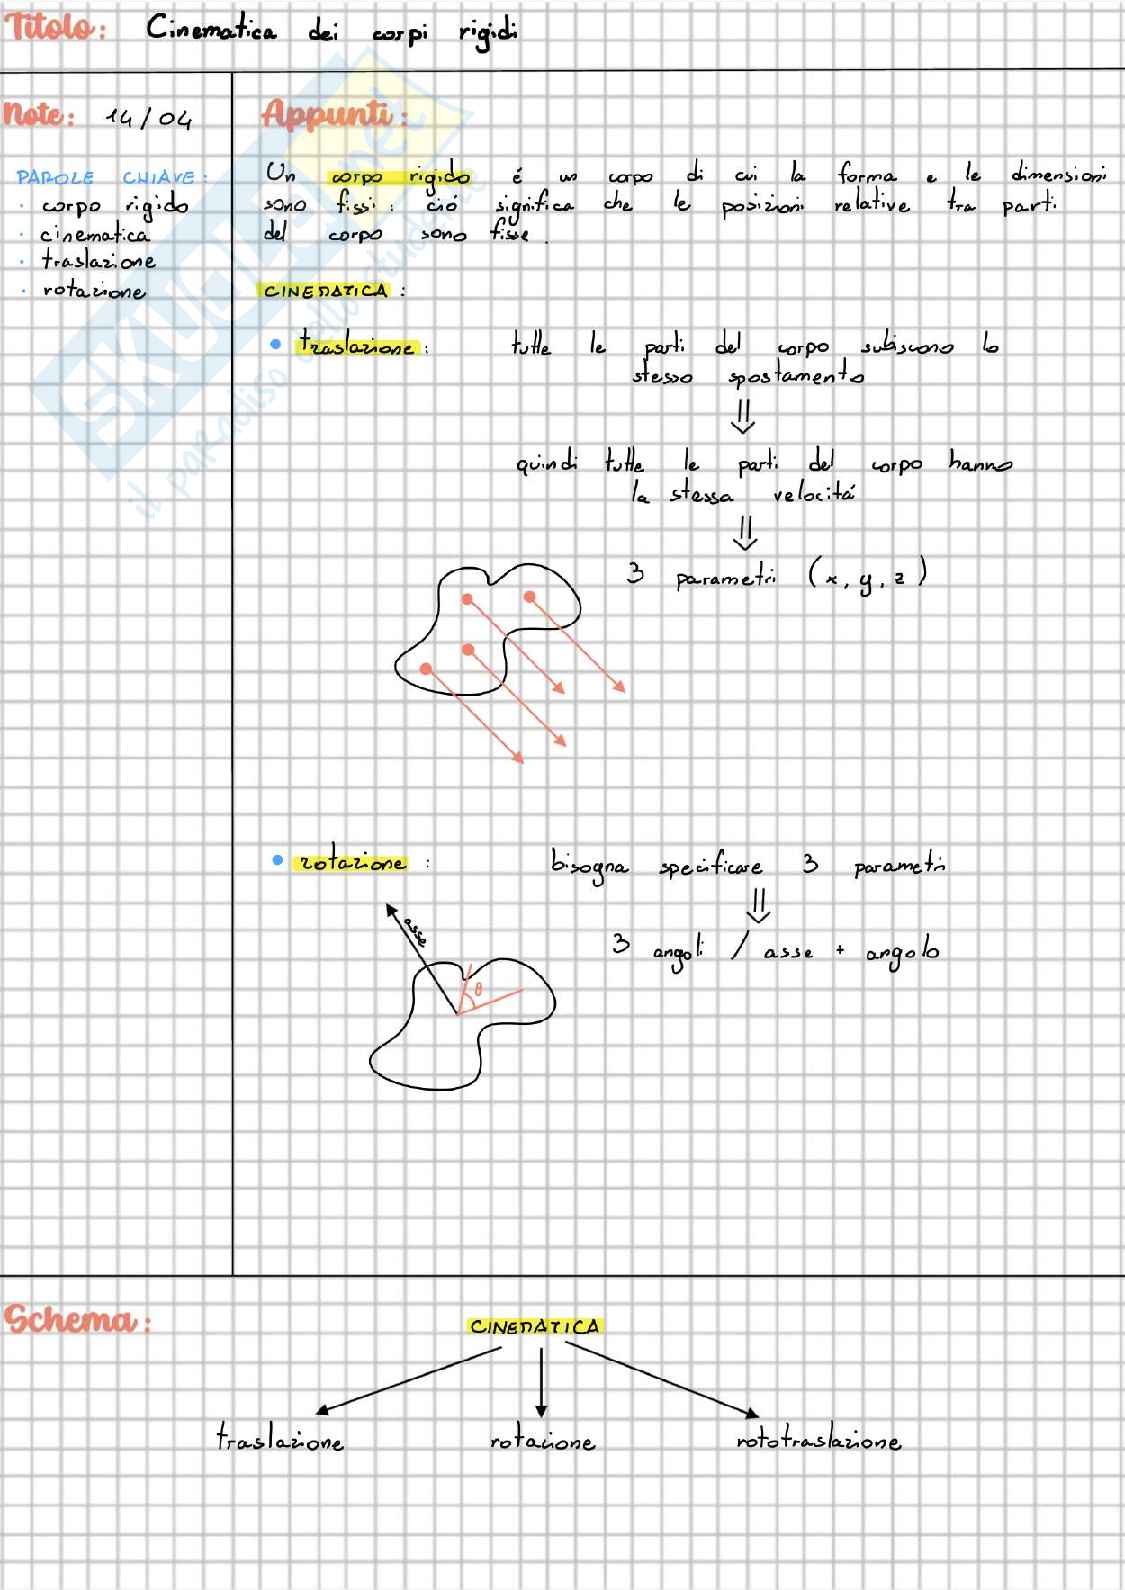 Titolo: Cinematica dei corpi rigidi
Note: 14/04
PAROLE CHIAVE:
· corpo rigido
· cinematica
· traslazione
· rotazione
Appunti:
Un corpo rigido é un corpo di cui la forma e le dimensioni
sono fissi: ció significa che le posizioni relative tra parti
del corpo sono fisse.
CINEMATICA:
• traslazione: tutte le parti del corpo subiscono lo
stesso spostamento
⇓
quindi tutte le parti del corpo hanno
la stessa velocitá
⇓
3 parametri (x, y, z)
• rotazione: bisogna specificare 3 parametri
⇓
3 angoli / asse + angolo
asse
θ
Schema:
CINEMATICA
traslazione rotazione rototraslazione
SKUOLA.net
il paradiso dello studente